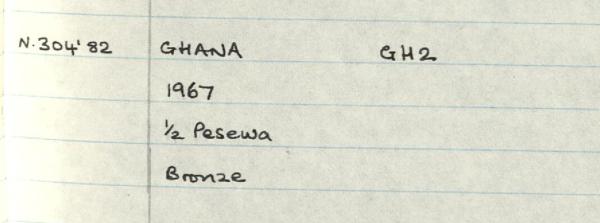 N.304'82 GHANA GH2
1967
½ Pesewa
Bronze